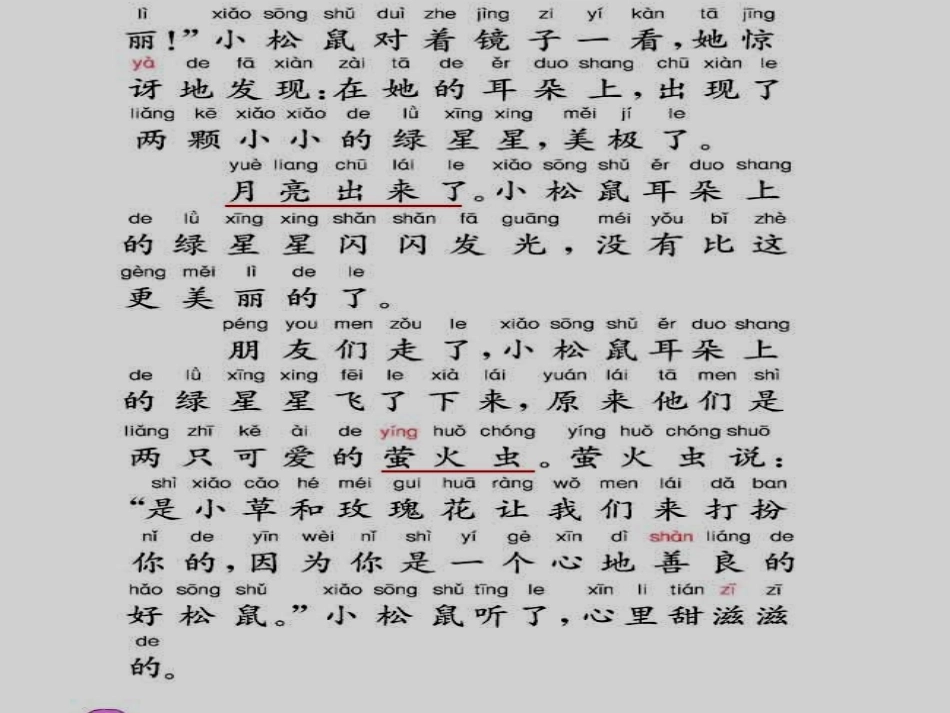 lì xiǎo sōng shǔ duì zhe jìng zi yí kàn tā jīng
丽！”小松鼠对着镜子一看，她惊
yà de fā xiàn zài tā de ěr duo shang chū xiàn le
讶地发现：在她的耳朵上，出现了
liǎng kē xiǎo xiǎo de lǜ xīng xing měi jí le
两颗小小的绿星星，美极了。
yuè liang chū lái le xiǎo sōng shǔ ěr duo shang
月亮出来了。小松鼠耳朵上
de lǜ xīng xing shǎn shǎn fā guāng méi yǒu bǐ zhè
的绿星星闪闪发光，没有比这
gèng měi lì de le
更美丽的了。
péng you men zǒu le xiǎo sōng shǔ ěr duo shang
朋友们走了，小松鼠耳朵上
de lǜ xīng xing fēi le xià lái yuán lái tā men shì
的绿星星飞了下来，原来他们是
liǎng zhī kě ài de yíng huǒ chóng yíng huǒ chóng shuō
两只可爱的萤火虫。萤火虫说：
shì xiǎo cǎo hé méi gui huā ràng wǒ men lái dǎ ban
“是小草和玫瑰花让我们来打扮
nǐ de yīn wèi nǐ shì yí gè xīn dì shàn liáng de
你的，因为你是一个心地善良的
hǎo sōng shǔ xiǎo sōng shǔ tīng le xīn li tián zī zī
好松鼠。”小松鼠听了，心里甜滋滋
de
的。